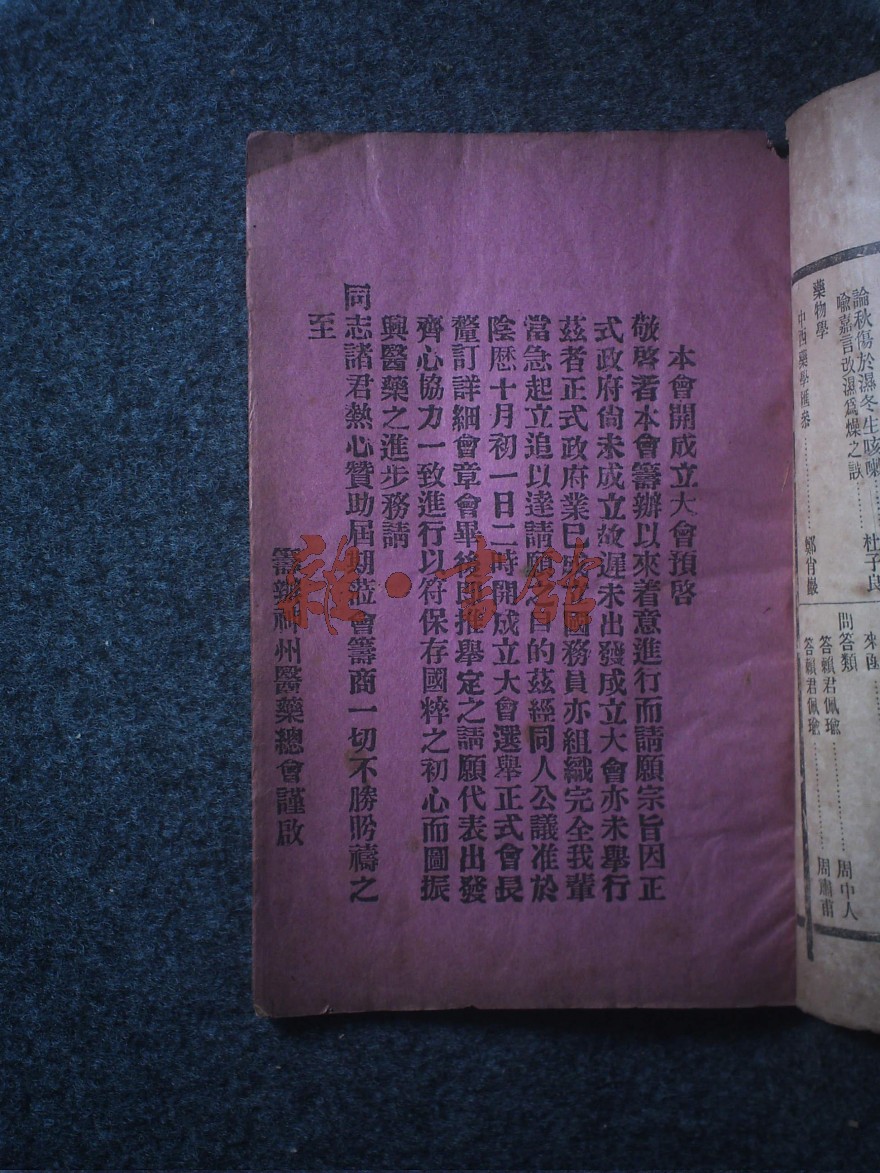 本會開成立大會預啓
敬啓著本會籌辦以來着意進行而請願宗旨因正
式政府尙未成立故遲未出發成立大會亦未舉行
茲者正式政府業已成立國務員亦組織完全我輩
當急起立追以達請願之目的茲經同人公議准於
陰歷十月初一日二時開成立大會選舉正式會長
釐訂詳細會章會畢後即推舉定之請願代表出發
齊心協力一致進行以符保存國粹之初心而圖振
興醫藥之進步務請
同志諸君熱心贊助屆期蒞會籌商一切不勝盼禱之
至
籌辦神州醫藥總會謹啟
雜·書館
論秋傷於濕冬生咳嗽……杜子良
喩嘉言改濕爲燥之誤
藥物學
中西藥學匯參……鄭肖巖
來函
問答類
答賴君佩瑜……周中人
答賴君佩瑜……周瑞甫